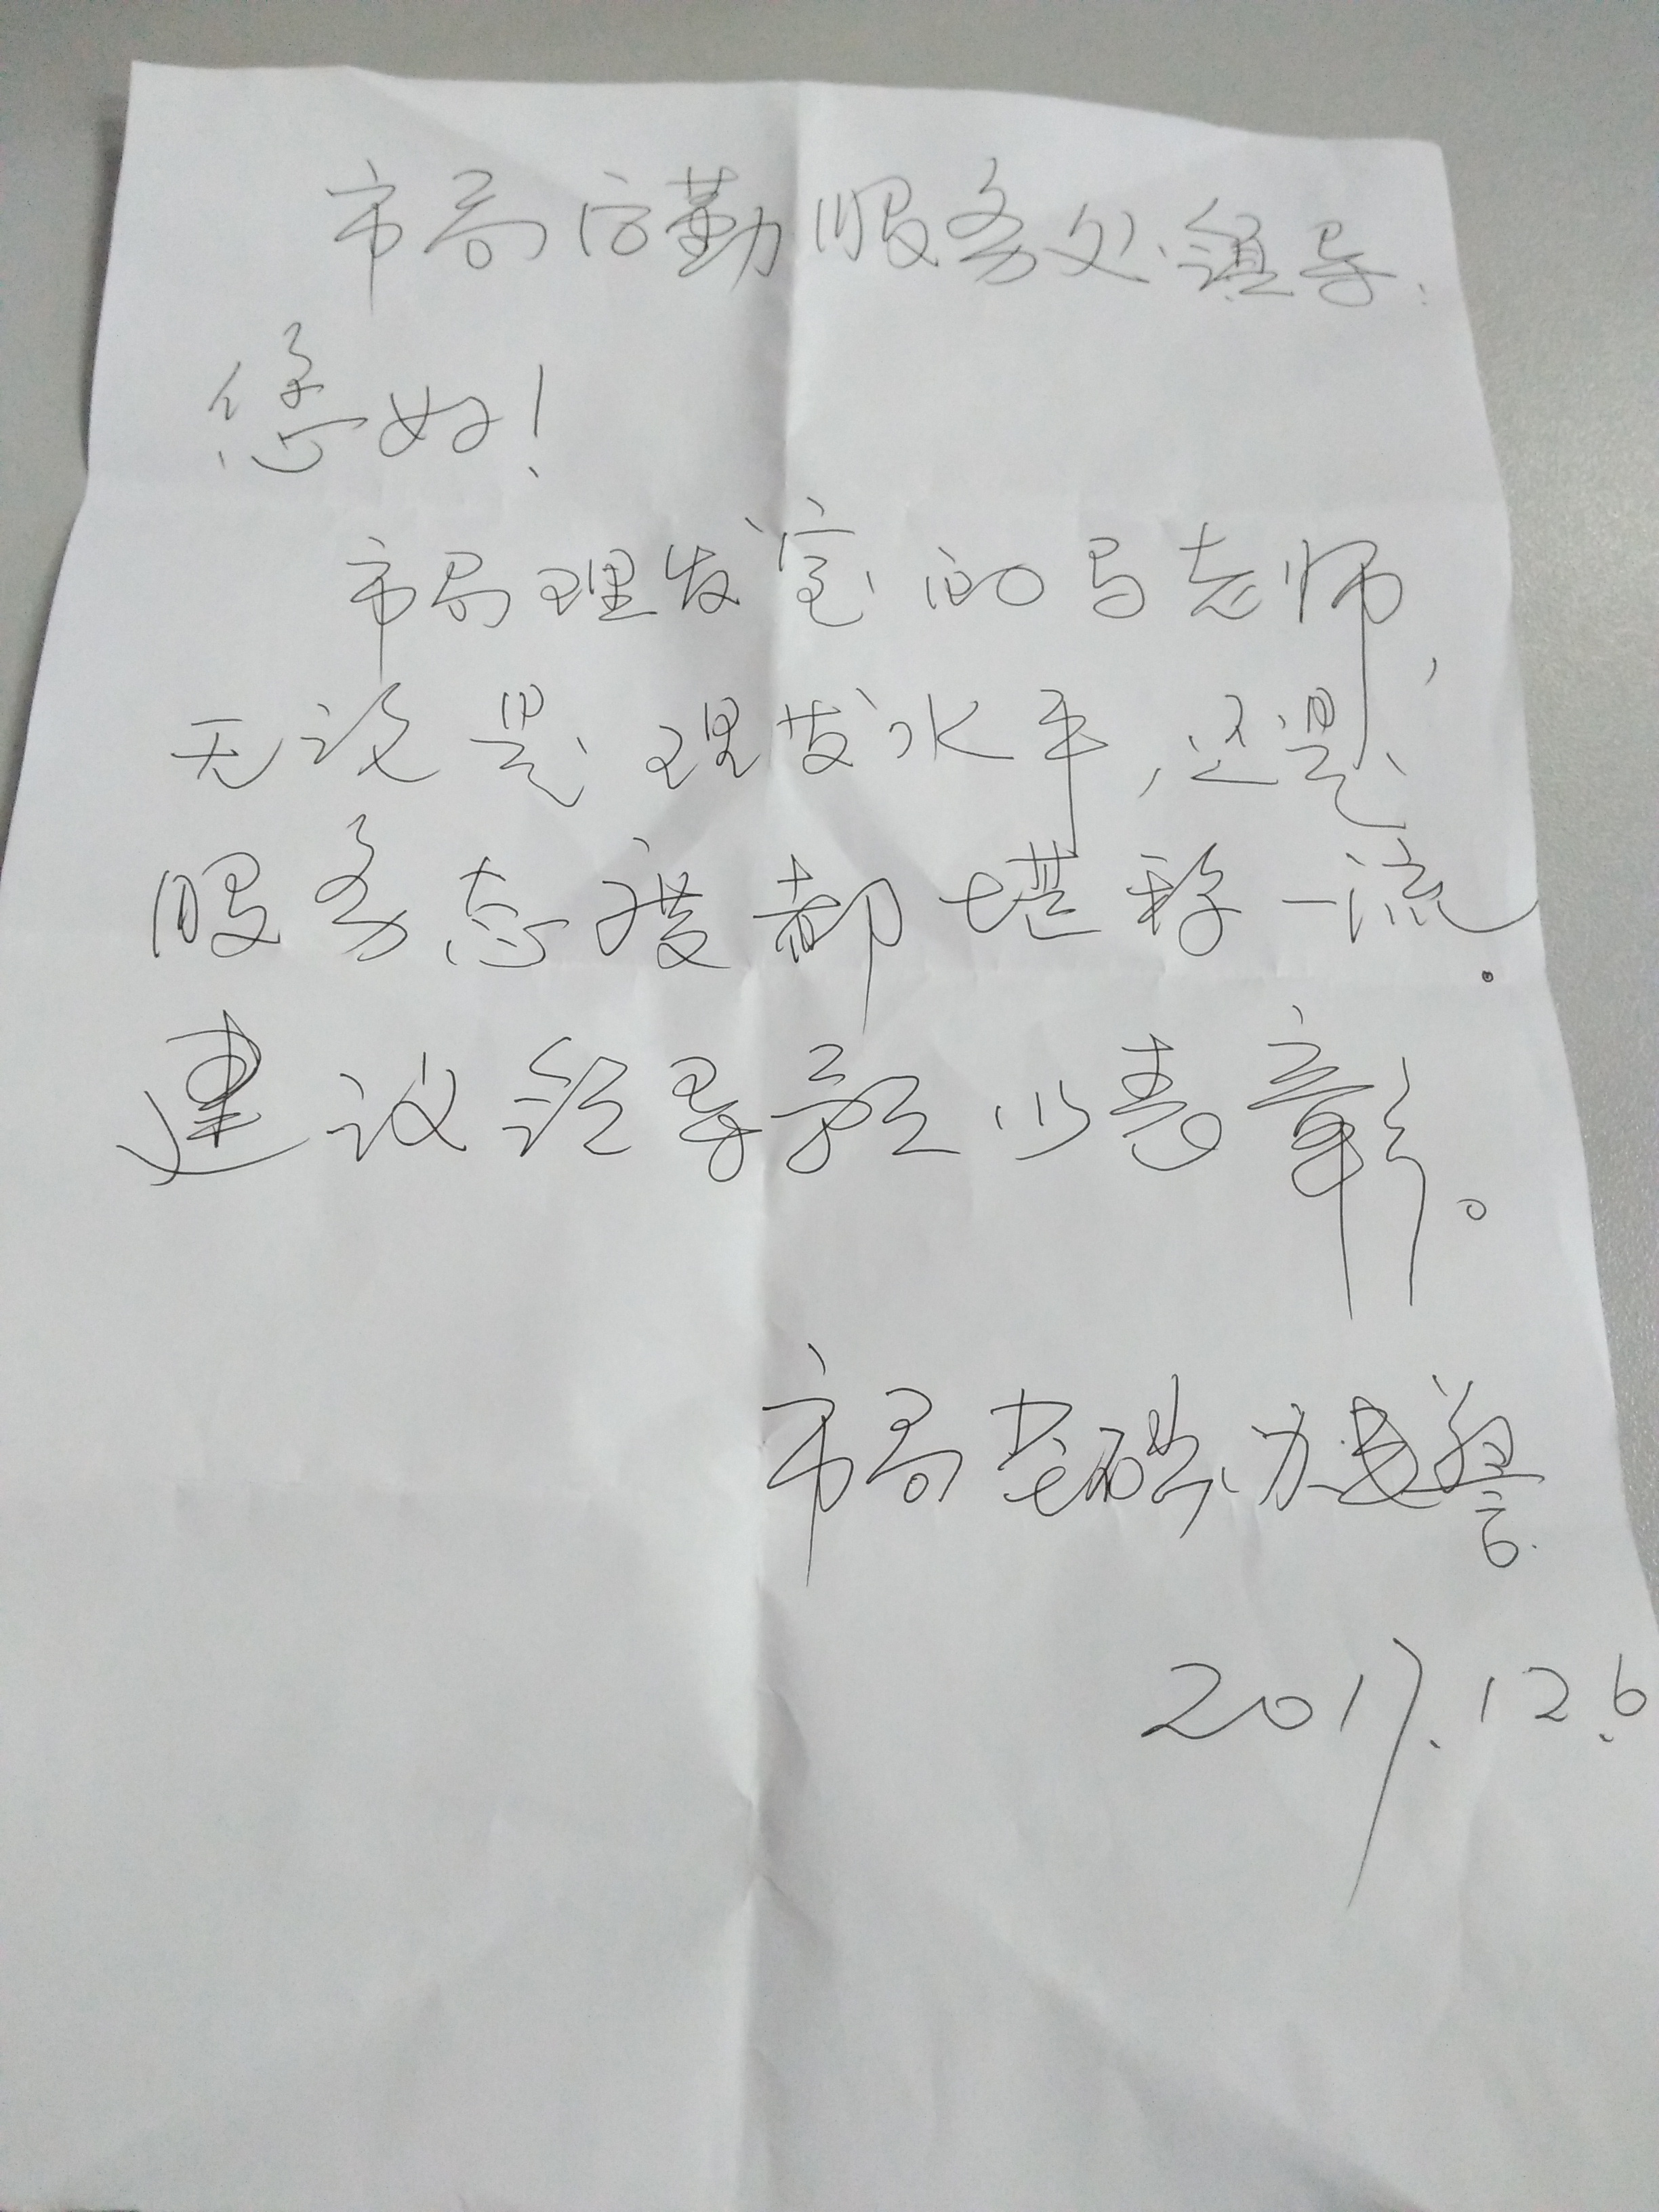 市局后勤服务处领导:
您好！
市局理发室的马老师，
无论是理发水平，还是
服务态度都堪称一流。
建议领导予以表彰。
市局基础办民警
2017.12.6